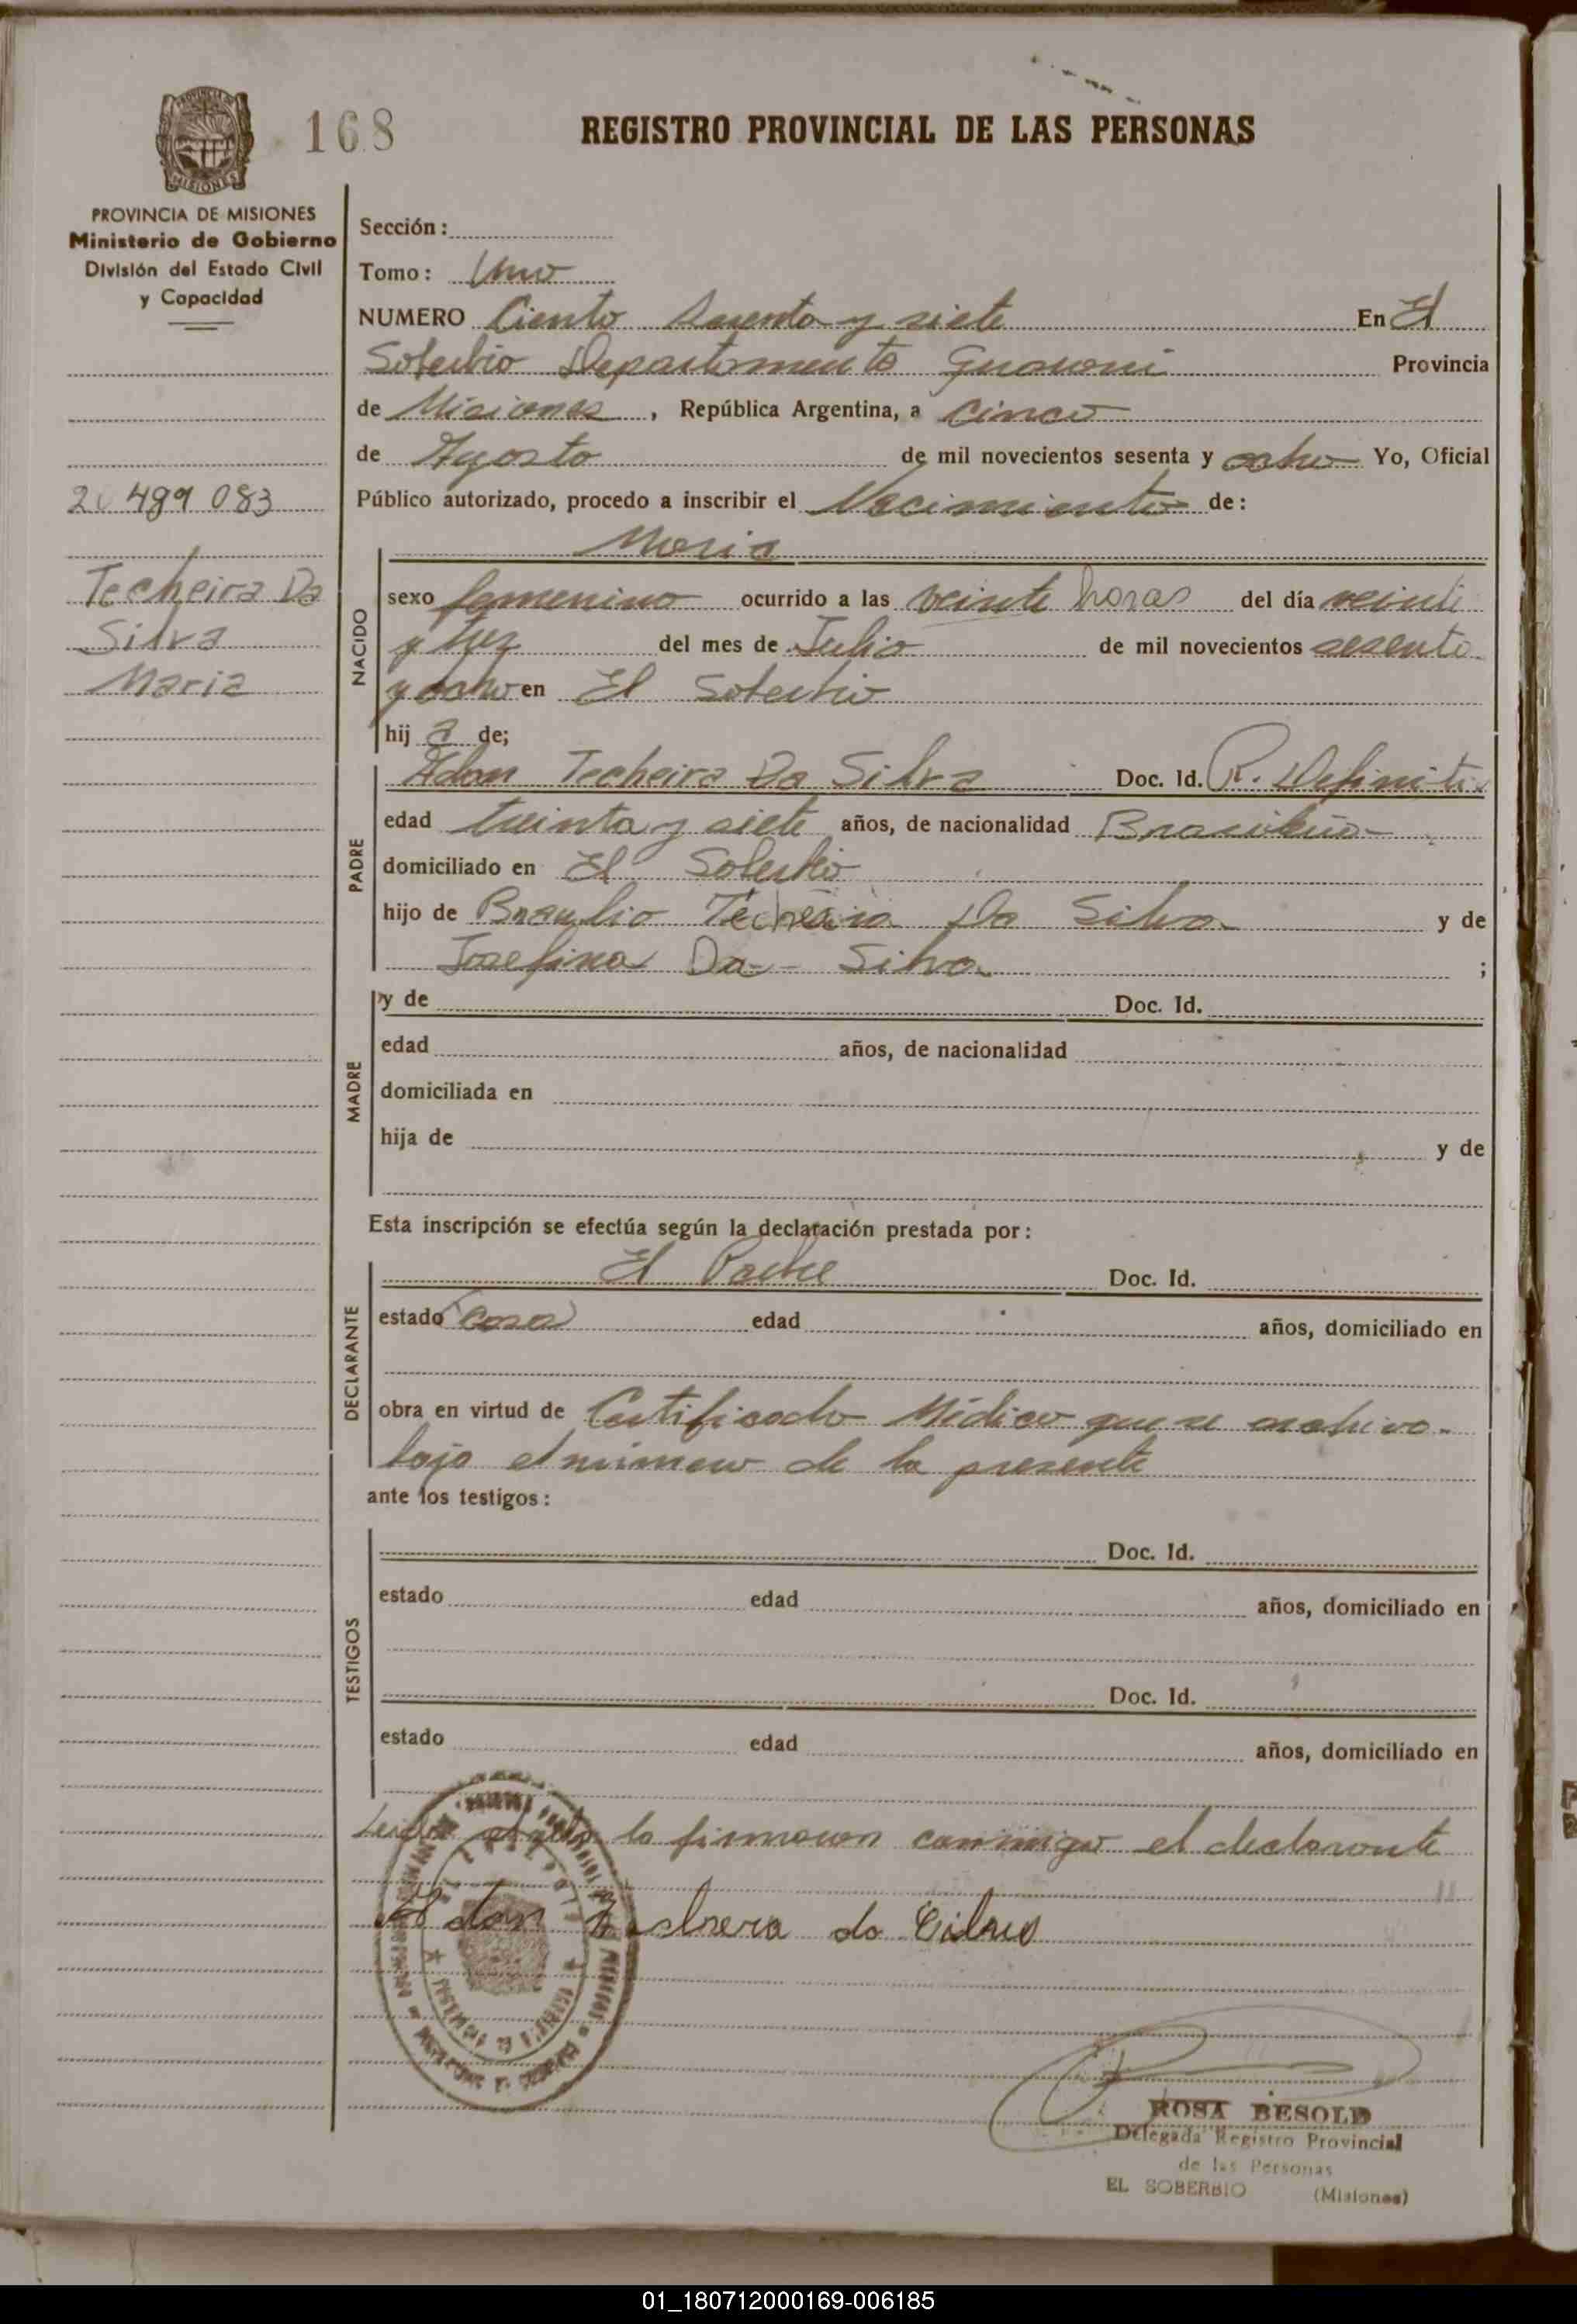 168
REGISTRO PROVINCIAL DE LAS PERSONAS
PROVINCIA DE MISIONES
Ministerio de Gobierno
División del Estado Civil
y Capacidad
20 489 083
Techeira Da
Silva
Maria
Sección:
Tomo: Uno
NUMERO Ciento Sesenta y siete En El
Soberbio Departamento Guarani Provincia
de Misiones, República Argentina, a Cinco
de Agosto de mil novecientos sesenta y ocho Yo, Oficial
Público autorizado, procedo a inscribir el Nacimiento de:
Maria
NACIDO
sexo femenino ocurrido a las veinte horas del día veinti
y tres del mes de Julio de mil novecientos sesenta
y ocho en El Soberbio
hij a de;
PADRE
Adan Techeira Da Silva Doc. Id. R. Definitiv
edad treinta y siete años, de nacionalidad Brasileña
domiciliado en El Soberbio
hijo de Braulio Techeira Da Silva y de
Josefina Da Silva ;
MADRE
y de Doc. Id.
edad años, de nacionalidad
domiciliada en
hija de y de
Esta inscripción se efectúa según la declaración prestada por:
DECLARANTE
El Padre Doc. Id.
estado edad años, domiciliado en
obra en virtud de Certificado Médico que se archiva
bajo el número de la presente
ante los testigos:
TESTIGOS
Doc. Id.
estado edad años, domiciliado en
Doc. Id.
estado edad años, domiciliado en
Leida el acta la firmaron conmigo el declarante
Adan Techera da Silva
ROSA BESOLD
Delegada Registro Provincial
de las Personas
EL SOBERBIO (Misiones)
01_180712000169-006185